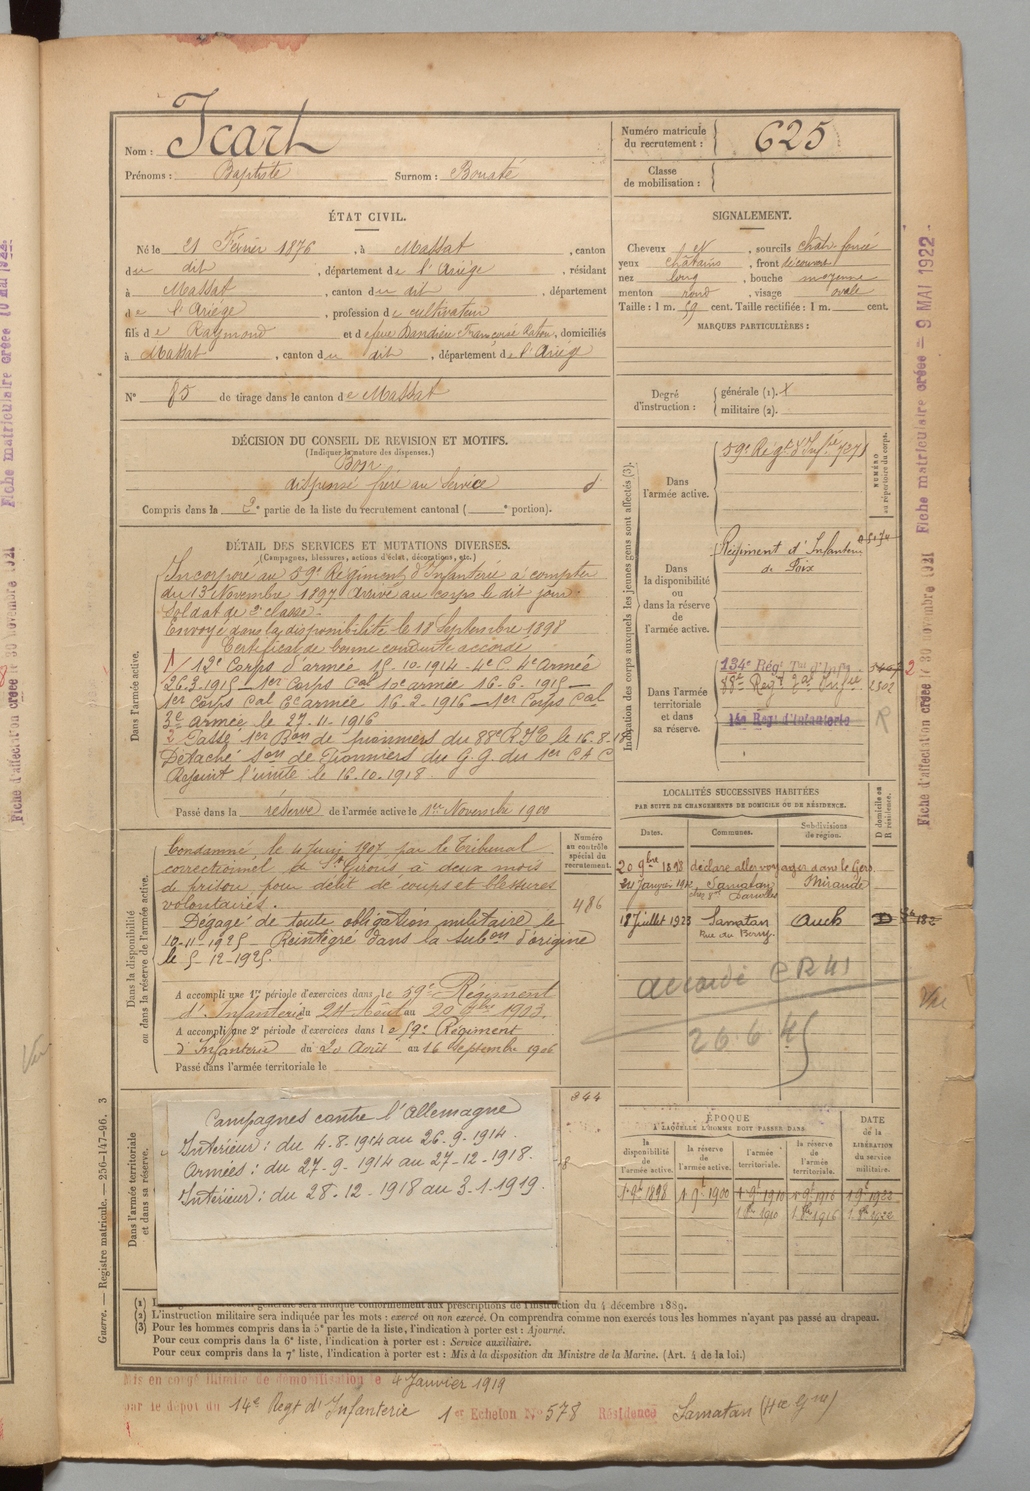 Nom : Icart
Prénoms : Baptiste Surnom : Bousté
Numéro matricule du recrutement : 625
Classe de mobilisation :
ÉTAT CIVIL.
Né le 21 Février 1876, à Massat, canton
du dit, département de l'Ariège, résidant
à Massat, canton du dit, département
de l'Ariège, profession de cultivateur
fils de Raymond et de feue Dandieu Françoise Caton, domiciliés
à Massat, canton du dit, département de l'Ariège
N° 85 de tirage dans le canton de Massat
SIGNALEMENT.
Cheveux et, sourcils chât. foncé
yeux châtains, front découvert
nez long, bouche moyenne
menton rond, visage ovale
Taille : 1 m. 59 cent. Taille rectifiée : 1 m. cent.
MARQUES PARTICULIÈRES :
Degré d'instruction : générale (1). militaire (2).
DÉCISION DU CONSEIL DE REVISION ET MOTIFS.
(Indiquer la nature des dispenses.)
Bon
dispensé frère au service
Compris dans la 2e partie de la liste du recrutement cantonal ( e portion).
DÉTAIL DES SERVICES ET MUTATIONS DIVERSES.
(Campagnes, blessures, actions d'éclat, décorations, etc.)
Dans l'armée active.
Incorporé au 59e Régiment d'Infanterie à compter
du 13 Novembre 1897 arrivé au corps le dit jour
Soldat de 2e classe.
Envoyé dans la disponibilité le 18 Septembre 1898
Certificat de bonne conduite accordé
12e Corps d'armée 15-10-1914 - 4e C. 4e Armée
26.3.1915 - 1er Corps Cal 10e armée 16-6-1915 -
1er Corps Cal 6e armée 16-2-1916 - 1er Corps Cal
3e armée le 27-11-1916
2 Passé 1er Bon de pionniers du 88e R.I.T. le 16-8-18
Détaché Son de Pionniers du G.G. du 1er C A C
Rejoint l'unité le 16.10.1918.
Passé dans la réserve de l'armée active le 1er Novembre 1900
Dans la disponibilité ou dans la réserve de l'armée active.
Condamné le 4 Juin 1907 par le Tribunal
correctionnel de St Girons à deux mois
de prison pour délit de coups et blessures
volontaires.
Dégagé de toute obligation militaire le
10-11-1925 - Réintégré dans la subon d'origine
le 5-12-1925.
A accompli une 1re période d'exercices dans le 59e Régiment
d'Infanterie du 24 Août au 20 7bre 1903.
A accompli une 2e période d'exercices dans le 59e Régiment
d'Infanterie du 20 Août au 16 Septembre 1906
Passé dans l'armée territoriale le
Numéro au contrôle spécial du recrutement.
486
344
Dans l'armée territoriale et dans sa réserve.
Campagnes contre l'Allemagne
Intérieur : du 4.8.1914 au 26.9.1914.
Armées : du 27-9-1914 au 27-12-1918.
Intérieur : du 28.12.1918 au 3.1.1919.
Indication des corps auxquels les jeunes gens sont affectés (3).
NUMÉRO au répertoire du corps.
Dans l'armée active.
59e Régt d'Infrie 7271
Dans la disponibilité ou dans la réserve de l'armée active.
Régiment d'Infanterie
de Foix
Dans l'armée territoriale et dans sa réserve.
134e Régt Tal d'Infie
88e Régt Tal Infie 2302
14e Régt d'Infanterie R
LOCALITÉS SUCCESSIVES HABITÉES
PAR SUITE DE CHANGEMENTS DE DOMICILE OU DE RÉSIDENCE.
Dates. Communes. Subdivisions de région. D domicile ou R résidence.
20 9bre 1898 déclare aller voyager dans le Gers.
Janvier Samatan Mirande
18 Juillet 1923 Samatan Auch D
Rue du Bourg.
accordé CR 41
26.6.45
Vu
Vu
ÉPOQUE
A LAQUELLE L'HOMME DOIT PASSER DANS
la disponibilité de l'armée active. la réserve de l'armée active. l'armée territoriale. la réserve de l'armée territoriale. DATE de la LIBÉRATION du service militaire.
1 9t 1898 1 9t 1900 1 9t 1910 1 9t 1916 1 9t 1922
1 8bre 1910 1 8bre 1916 1 8bre 1922
instruction générale sera indiquée conformément aux prescriptions de l'instruction du 4 décembre 1889.
(2) L'instruction militaire sera indiquée par les mots : exercé ou non exercé. On comprendra comme non exercés tous les hommes n'ayant pas passé au drapeau.
(3) Pour les hommes compris dans la 5e partie de la liste, l'indication à porter est : Ajourné.
Pour ceux compris dans la 6e liste, l'indication à porter est : Service auxiliaire.
Pour ceux compris dans la 7e liste, l'indication à porter est : Mis à la disposition du Ministre de la Marine. (Art. 4 de la loi.)
Mis en congé illimité de démobilisation le 4 Janvier 1919
par le dépôt du 14e Régt d'Infanterie 1er Echelon No 578 Résidence Samatan (Hte Gne)
Guerre. — Registre matricule. — 256-147-96. 3
Fiche d'affectation créée le 30 novembre 1921 Fiche matriculaire créée - 9 MAI 1922 -
Fiche d'affectation créée le 30 novembre 1921 Fiche matriculaire créée 10 Mai 1922